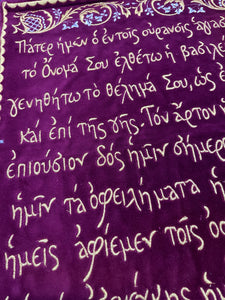 Πάτερ ἡμῶν ὁ ἐν τοῖς οὐρανοῖς ἁγιασ
τὸ Ὄνομά Σου ἐλθέτω ἡ βασιλεί
γενηθήτω τὸ θέλημά Σου, ὡς ἐ
καὶ ἐπὶ τῆς γῆς. Τὸν ἄρτον ἡ
ἐπιούσιον δὸς ἡμῖν σήμερ
ἡμῖν τὰ ὀφειλήματα ἡ
ἡμεῖς ἀφίεμεν τοῖς ὀ